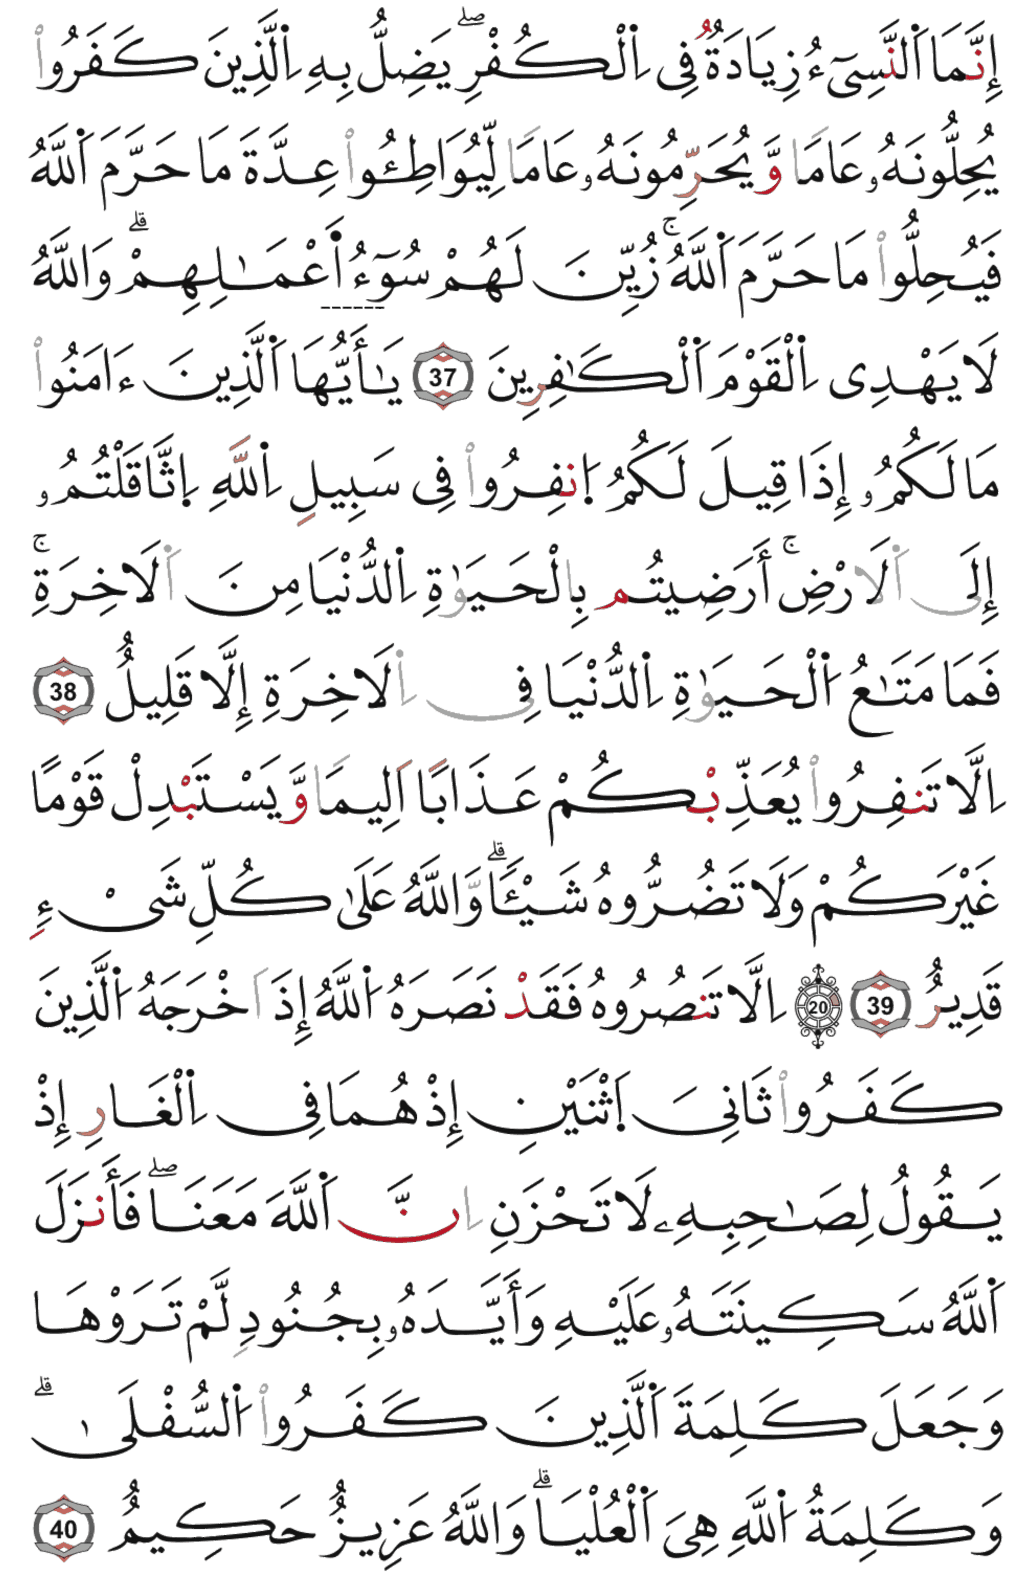 إِنَّمَا اَ۬لنَّسِيٓءُ زِيَادَةٞ فِي اِ۬لْكُفْرِۖ يَضِلُّ بِهِ اِ۬لذِينَ كَفَرُواْ
يُحِلُّونَهُۥ عَامٗا وَيُحَرِّمُونَهُۥ عَامٗا لِّيُوَاطِـُٔواْ عِدَّةَ مَا حَرَّمَ اَ۬للَّهُ
فَيُحِلُّواْ مَا حَرَّمَ اَ۬للَّهُۚ زُيِّنَ لَهُمْ سُوٓءُ اَ۬عْمَٰلِهِمْۗ وَاللَّهُ
لَا يَهْدِي اِ۬لْقَوْمَ اَ۬لْكَٰفِرِينَ 37 يَٰأَيُّهَا اَ۬لذِينَ ءَامَنُواْ
مَا لَكُمُۥ إِذَا قِيلَ لَكُمُ اُ۪نفِرُواْ فِي سَبِيلِ اِ۬للَّهِ اِ۪ثَّاقَلْتُمُۥ
إِلَى اَ۬لَارْضِۚ أَرَضِيتُم بِالْحَيَوٰةِ اِ۬لدُّنْيَا مِنَ اَ۬لَاخِرَةِۚ
فَمَا مَتَٰعُ اُ۬لْحَيَوٰةِ اِ۬لدُّنْيَا فِي اِ۬لَاخِرَةِ إِلَّا قَلِيلٌ 38
اِلَّا تَنفِرُواْ يُعَذِّبْكُمْ عَذَابًا اَلِيمٗا وَيَسْتَبْدِلْ قَوْمًا
غَيْرَكُمْ وَلَا تَضُرُّوهُ شَيْـٔٗاۗ وَاللَّهُ عَلَىٰ كُلِّ شَيْءٖ
قَدِيرٌ 39 20 اِلَّا تَنصُرُوهُ فَقَدْ نَصَرَهُ اُ۬للَّهُ إِذَ اَخْرَجَهُ اُ۬لذِينَ
كَفَرُواْ ثَانِيَ اَ۪ثْنَيْنِ إِذْ هُمَا فِي اِ۬لْغَارِ إِذْ
يَقُولُ لِصَٰحِبِهِۦ لَا تَحْزَنِ اِنَّ اَ۬للَّهَ مَعَنَاۖ فَأَنزَلَ
اَ۬للَّهُ سَكِينَتَهُۥ عَلَيْهِ وَأَيَّدَهُۥ بِجُنُودٖ لَّمْ تَرَوْهَا
وَجَعَلَ كَلِمَةَ اَ۬لذِينَ كَفَرُواْ اُ۬لسُّفْلَىٰۗ
وَكَلِمَةُ اُ۬للَّهِ هِيَ اَ۬لْعُلْيَاۗ وَاللَّهُ عَزِيزٌ حَكِيمٌ 40